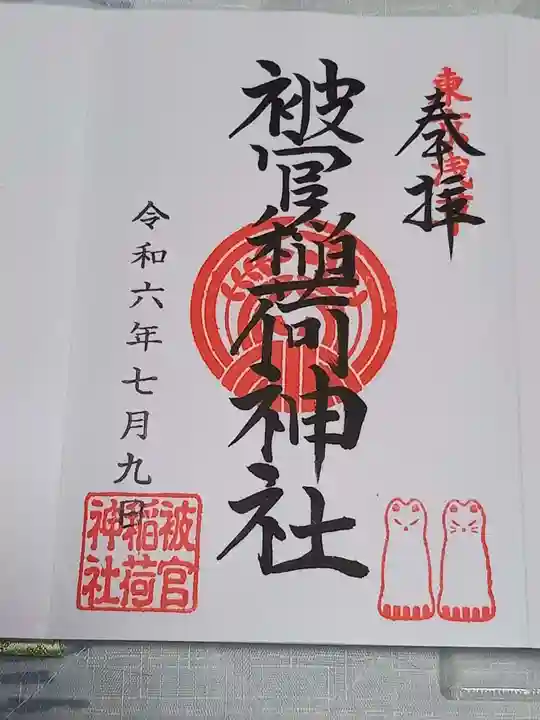 奉拝
東京浅草
被官稲荷神社
令和六年七月九日
被官
稲荷
神社